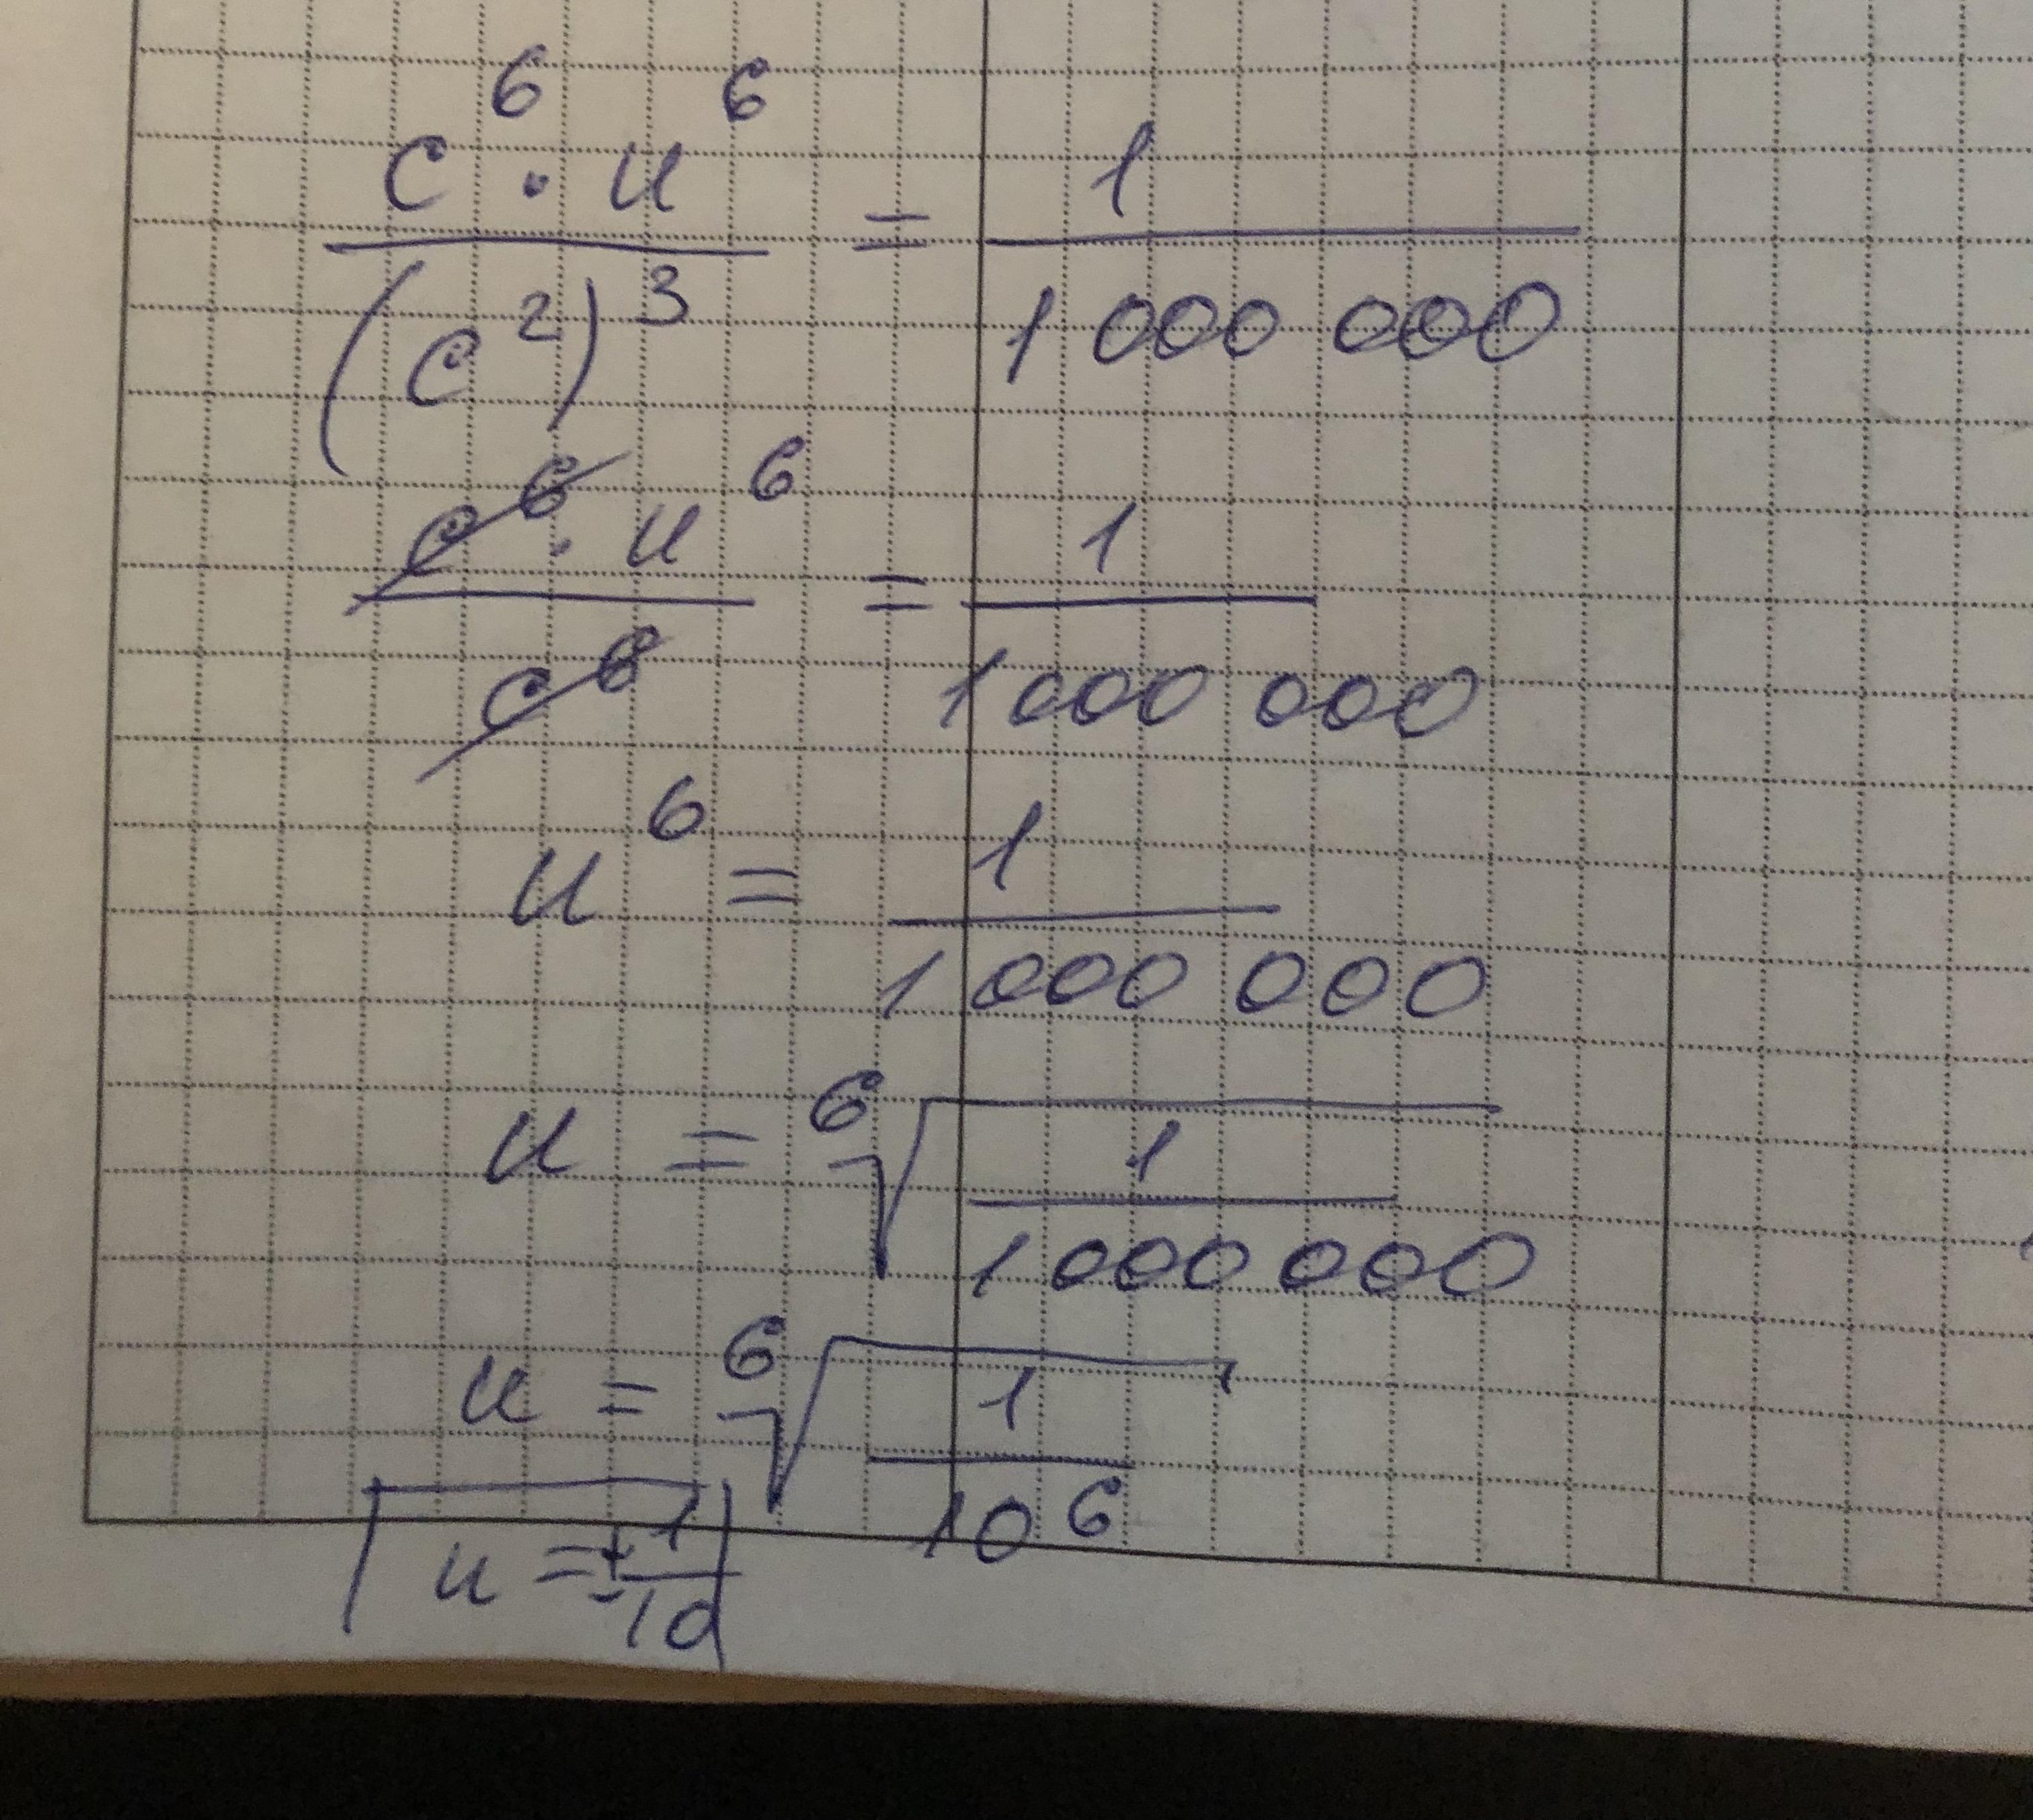 c⁶ · u⁶ / (c²)³ = 1 / 1 000 000
c⁶ · u⁶ / c⁶ = 1 / 1 000 000
u⁶ = 1 / 1 000 000
u = ⁶√(1 / 1 000 000)
u = ⁶√(1 / 10⁶)
u = ± 1 / 10